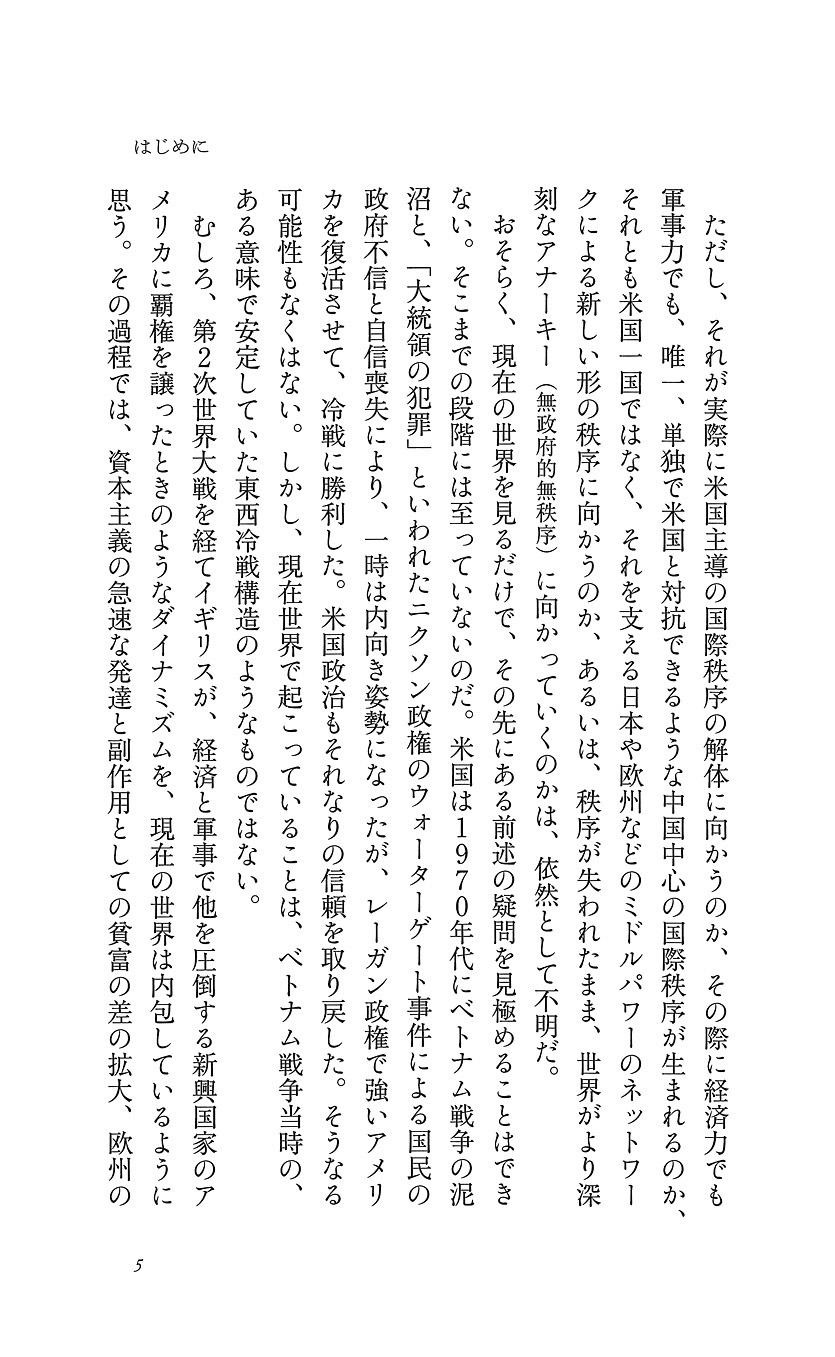 はじめに
　ただし、それが実際に米国主導の国際秩序の解体に向かうのか、その際に経済力でも
軍事力でも、唯一、単独で米国と対抗できるような中国中心の国際秩序が生まれるのか、
それとも米国一国ではなく、それを支える日本や欧州などのミドルパワーのネットワー
クによる新しい形の秩序に向かうのか、あるいは、秩序が失われたまま、世界がより深
刻なアナーキー（無政府的無秩序）に向かっていくのかは、依然として不明だ。
　おそらく、現在の世界を見るだけで、その先にある前述の疑問を見極めることはでき
ない。そこまでの段階には至っていないのだ。米国は1970年代にベトナム戦争の泥
沼と、「大統領の犯罪」といわれたニクソン政権のウォーターゲート事件による国民の
政府不信と自信喪失により、一時は内向き姿勢になったが、レーガン政権で強いアメリ
カを復活させて、冷戦に勝利した。米国政治もそれなりの信頼を取り戻した。そうなる
可能性もなくはない。しかし、現在世界で起こっていることは、ベトナム戦争当時の、
ある意味で安定していた東西冷戦構造のようなものではない。
　むしろ、第2次世界大戦を経てイギリスが、経済と軍事で他を圧倒する新興国家のア
メリカに覇権を譲ったときのようなダイナミズムを、現在の世界は内包しているように
思う。その過程では、資本主義の急速な発達と副作用としての貧富の差の拡大、欧州の
5